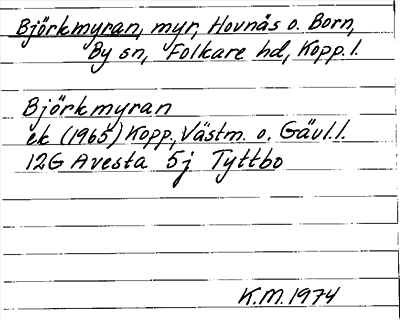 Björkmyran, myr, Hovnäs o. Born,
By sn, Folkare hd, Kopp. l.
Björkmyran
ek (1965) Kopp., Västm. o. Gävl. l.
12G Avesta 5j Tyttbo
K.M. 1974